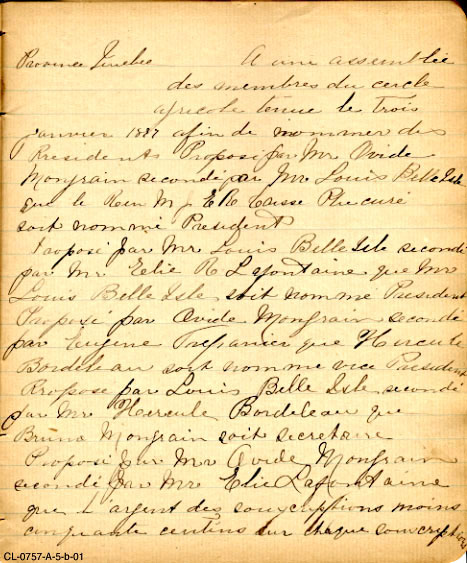 Province Quebec A une assemblée
des membres du cercle
agricole tenue le Trois
janvier 1887 afin de nommer des
Presidents Proposé par Mr Ovide
Mongrain secondé par Mr Louis Belle Isle
que le Reve M J E R Caisse Ptre curé
soit nommé President
Proposé par Mr Louis Belle Isle secondé
par Mr Elie R Lafontaine que Mr
Louis Belle Isle soit nommé President
Proposé par Ovide Mongrain secondé
par Eugene Trepanier que Hercule
Bordeleau soit nomme vice President
Propose par Louis Belle Isle secondé
par Mr Hercule Bordeleau que
Bruno Mongrain soit secretaire
Proposé par Mr Ovide Mongrain
secondé par Mr Elie Lafontaine
que l argent des souscriptions moins
cinquante centins sur chaque souscriptions
CL-0757-A-5-b-01